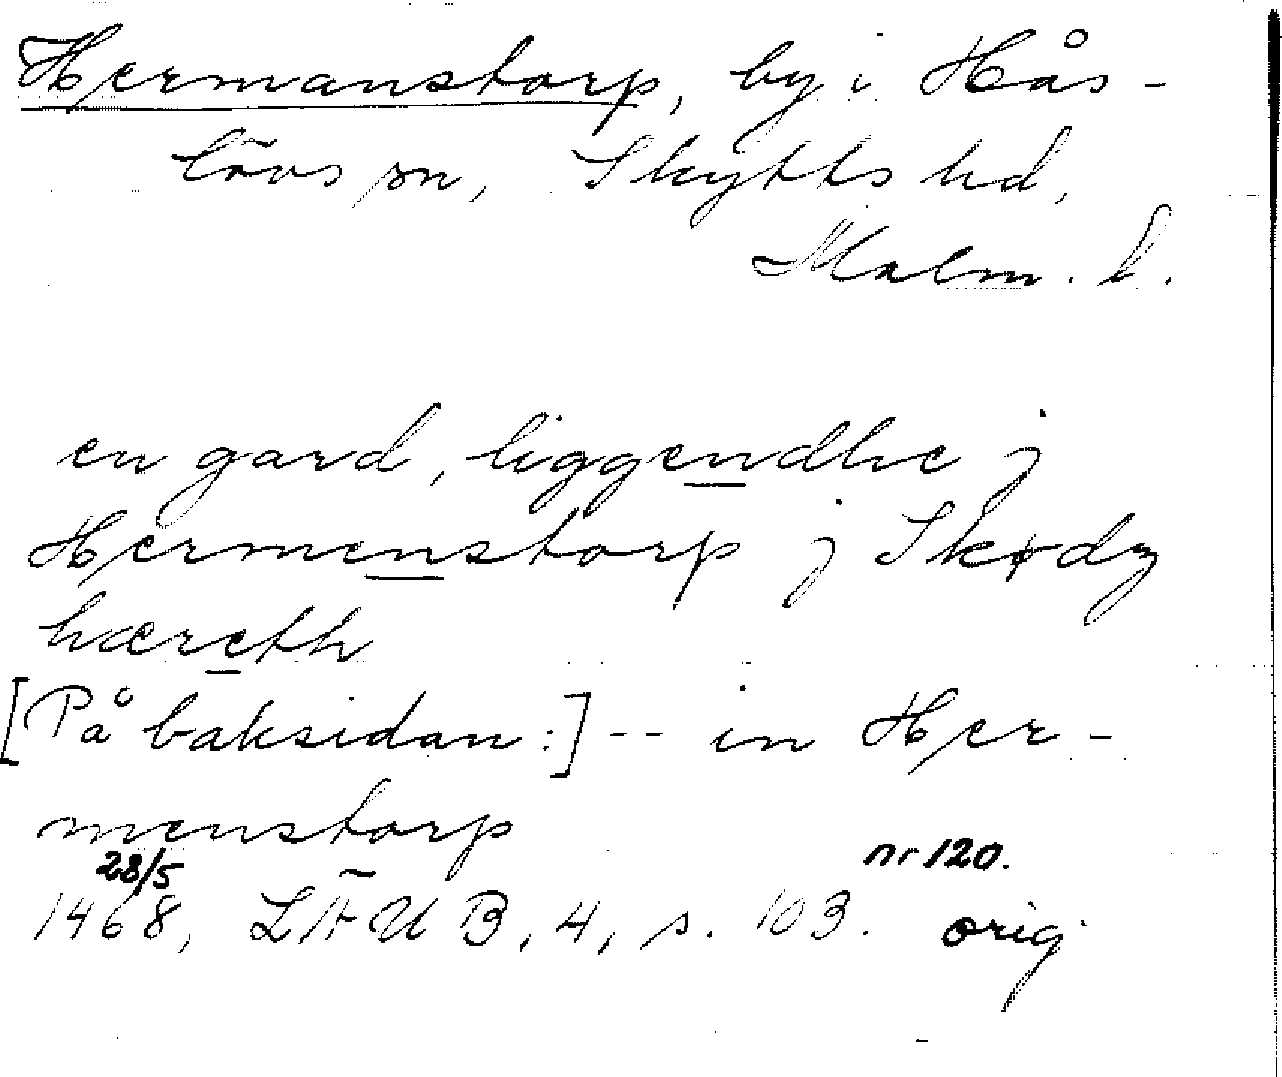 Hermanstorp, by i Hås-
lövs sn, Skytts hd,
Malm. l.
en gard, liggendhe j
Hermenstorp j Skødz
hæreth
[På baksidan:] -- in Her-
menstorp
28/5 nr 120.
1468, LÄUB, 4, s. 103. orig